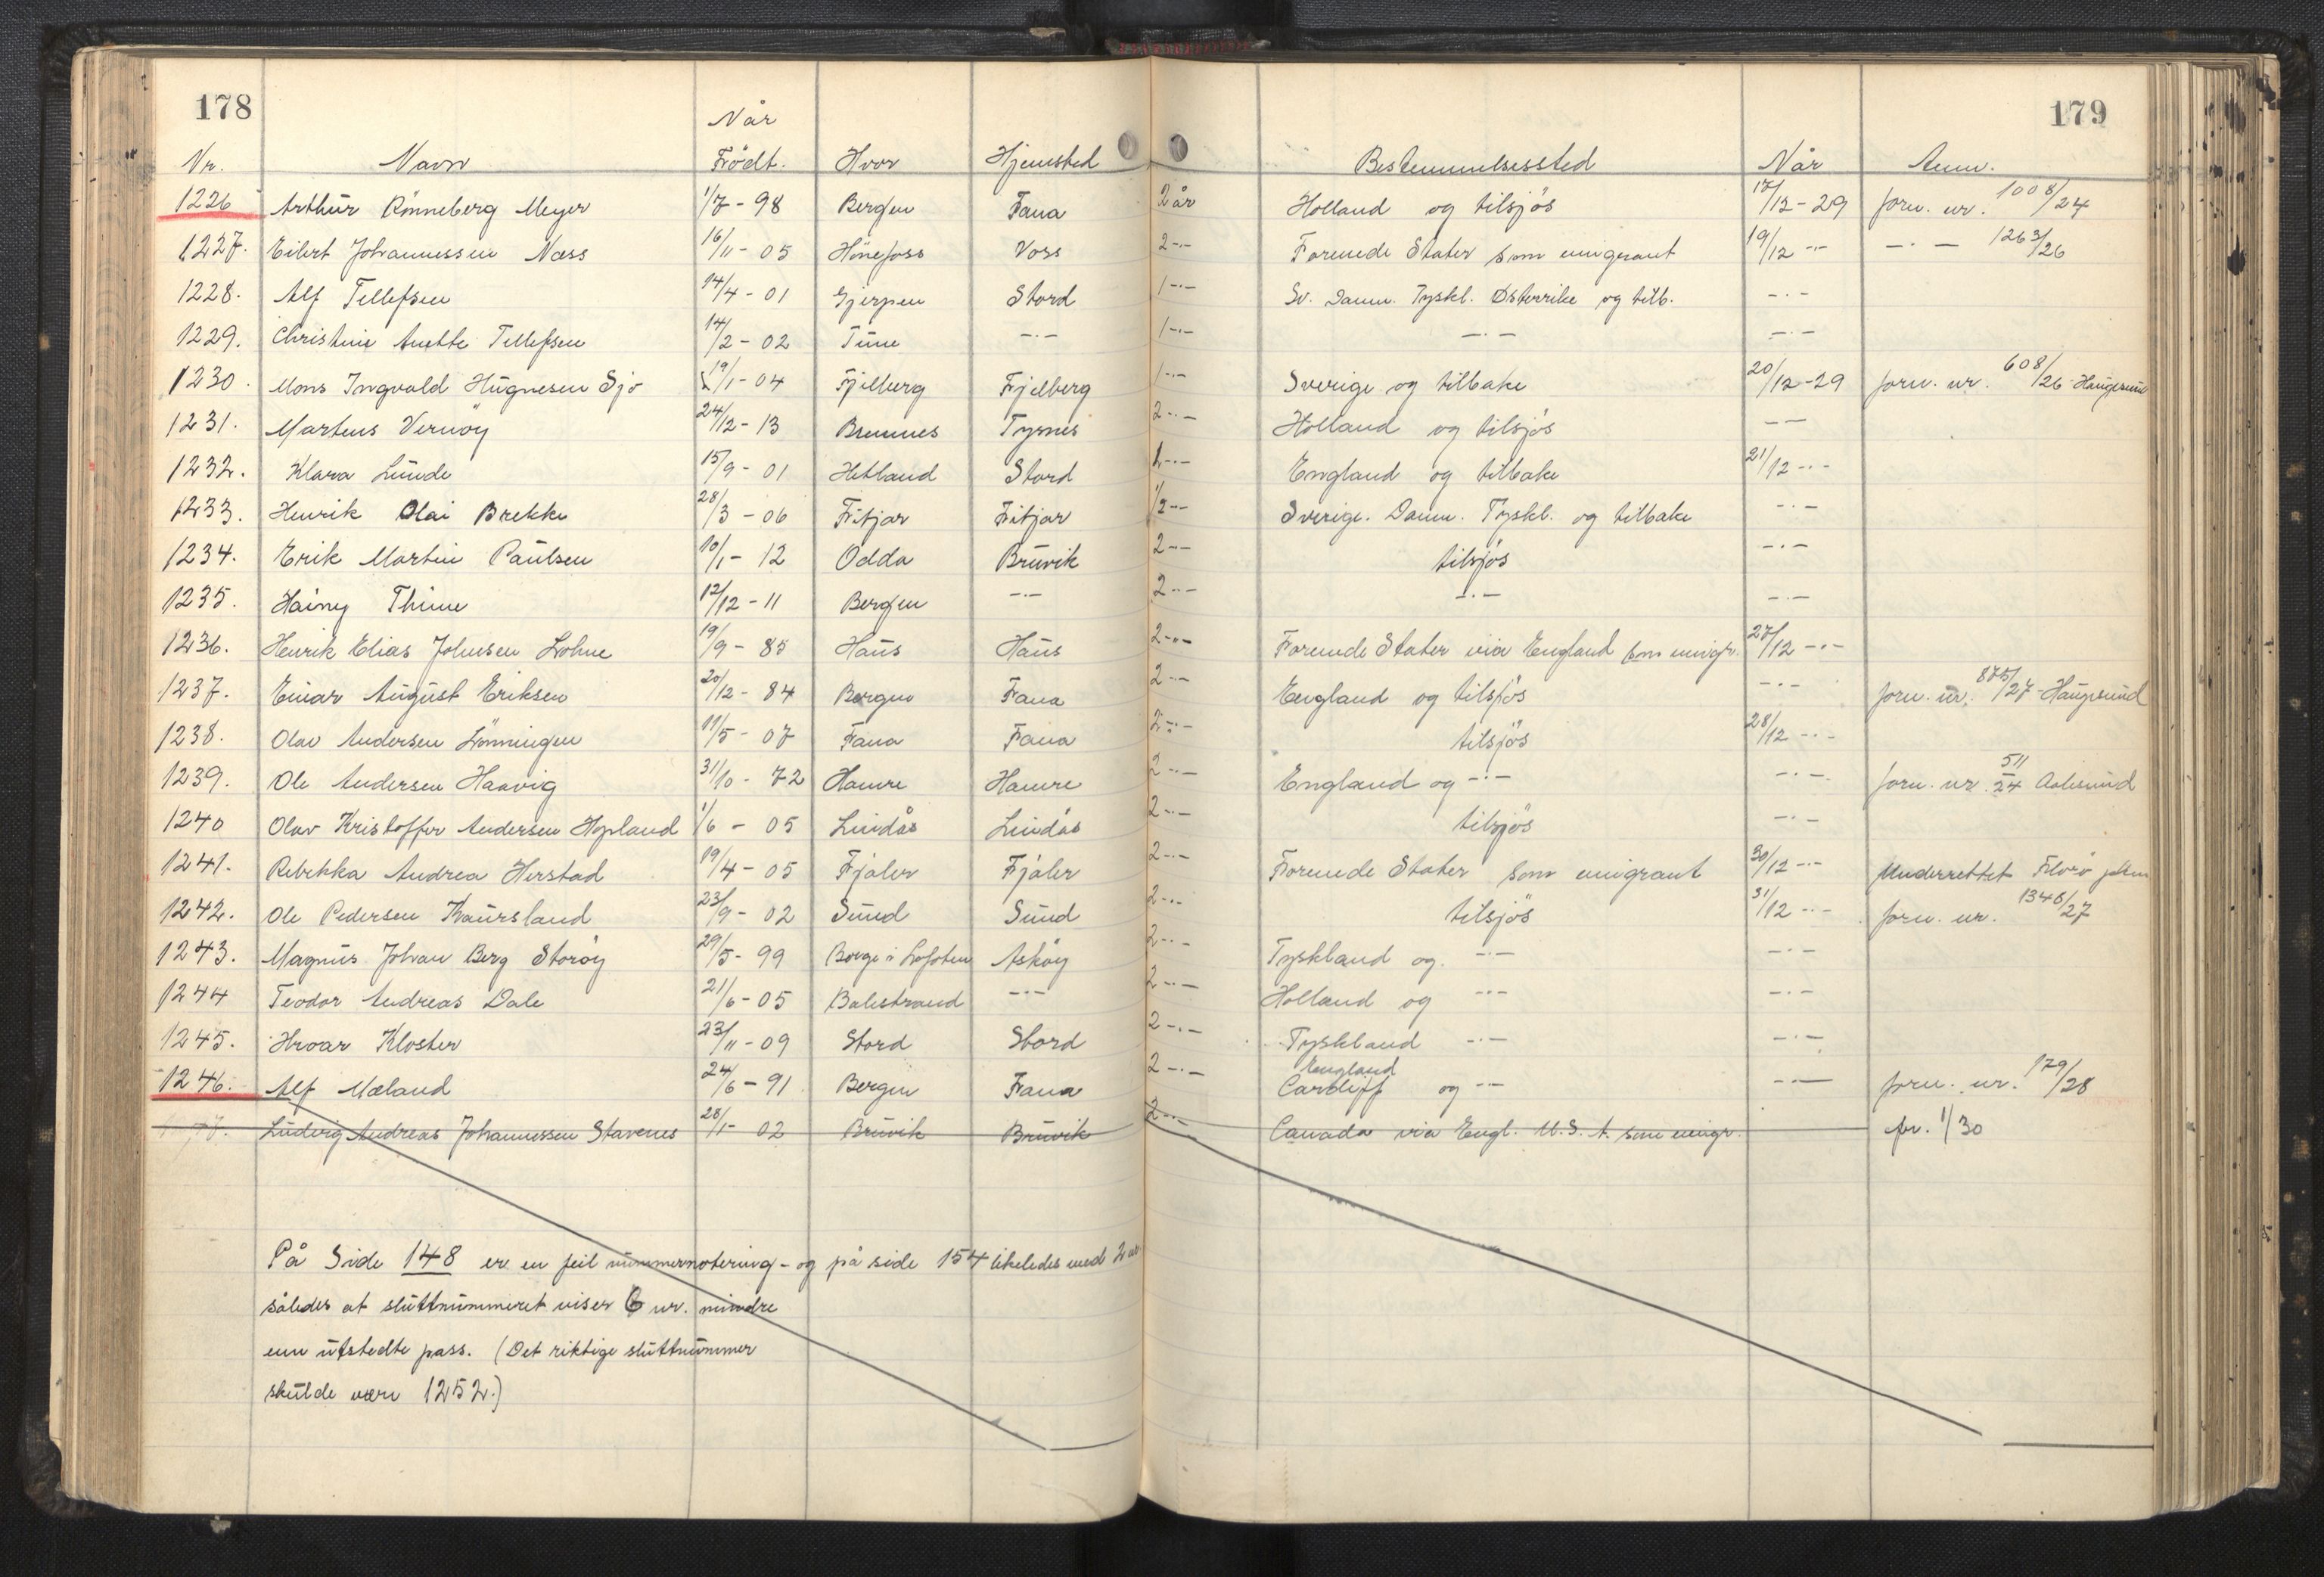 178
179
Når
Nr. Navn Födt. Hvor Hjemsted Bestemmelsessted Når Anm.
1226 Arthur Rönneberg Meyer 1/7 - 98 Bergen Fana 2 år Holland og tilsjös 17/12 - 29 forn. nr. 1008/24
1227. Eilert Johannessen Næss 16/11 - 05 Hönefoss Voss 2 -"- Forenede Stater som emigrant 19/12 -"- -"- 1263/26
1228. Alf Tellefsen 14/4 - 01 Gjerpen Stord 1 -"- Sv. Danm. Tyskl. Østerrike og tilb. -"-
1229. Christine Anette Tellefsen 14/2 - 02 Tune -"- 1 -"- -"- -"-
1230. Mons Ingvald Hugnesen Sjo 19/1 - 04 Fjelberg Fjelberg 1 -"- Sverige og tilbake 20/12 - 29 forn. nr. 608/26 Haugesund
1231. Martens Vernöy 24/12 - 13 Bremnes Tysnes 2 -"- Holland og tilsjös -"-
1232. Klara Lunde 15/9 - 01 Hetland Stord 1 -"- England og tilbake 21/12 -"-
1233. Henrik Olai Brekke 28/3 - 06 Fitjar Fitjar 1/2 -"- Sverige. Danm. Tyskl. og tilbake -"-
1234. Erik Martin Paulsen 10/1 - 12 Odda Bruvik 2 -"- tilsjös -"-
1235. Hainy Thime 12/12 - 11 Bergen -"- 2 -"- -"- -"-
1236. Henrik Elias Johnsen Lohne 19/9 - 85 Haus Haus 2 -"- Forenede Stater via England som emigr. 27/12 -"-
1237. Einar August Eriksen 20/12 - 84 Bergen Fana 2 -"- England og tilsjös -"- forn. nr. 875/27 - Haugesund
1238. Olav Andersen Lönningen 11/5 - 07 Fana Fana 2 -"- tilsjös 28/12 -"-
1239. Ole Andersen Haavig 31/10 - 72 Hamre Hamre 2 -"- England og -"- -"- forn. nr. 511/24 Aalesund
1240 Olav Kristoffer Andersen Hopland 1/6 - 05 Lindås Lindås 2 -"- tilsjös -"-
1241. Rebekka Andrea Herstad 19/4 - 05 Fjaler Fjaler 2 -"- Forenede Stater som emigrant 30/12 -"- Underrettet Florö
1242. Ole Pedersen Kaursland 23/9 - 02 Sund Sund 2 -"- tilsjös 31/12 -"- forn. nr. 1348/27
1243. Magnus Johan Berg Storöy 29/5 - 99 Borge i Lofoten Asköy 2 -"- Tyskland og -"- -"-
1244 Teodor Andreas Dale 21/6 - 05 Balestrand -"- 2 -"- Holland og -"- -"-
1245. Hroar Kloster 23/11 - 09 Stord Stord 2 -"- Tyskland -"- -"-
1246. Alf Mæland 24/6 - 91 Bergen Fana 2 -"- England Cardiff og -"- -"- forn. nr. 179/28
Ludvig Andreas Johannessen Stavenes 28/1 - 02 Bruvik Bruvik 2 -"- Canada via Engl. U.S.A. som emigr. fr. 1/30
På Side 148 er en feil nummernotering - og på side 154 likeledes med 2 nr.
således at sluttnummeret viser 6 nr. mindre
enn utstedte pass. (Det riktige sluttnummer
skulde være 1252.)